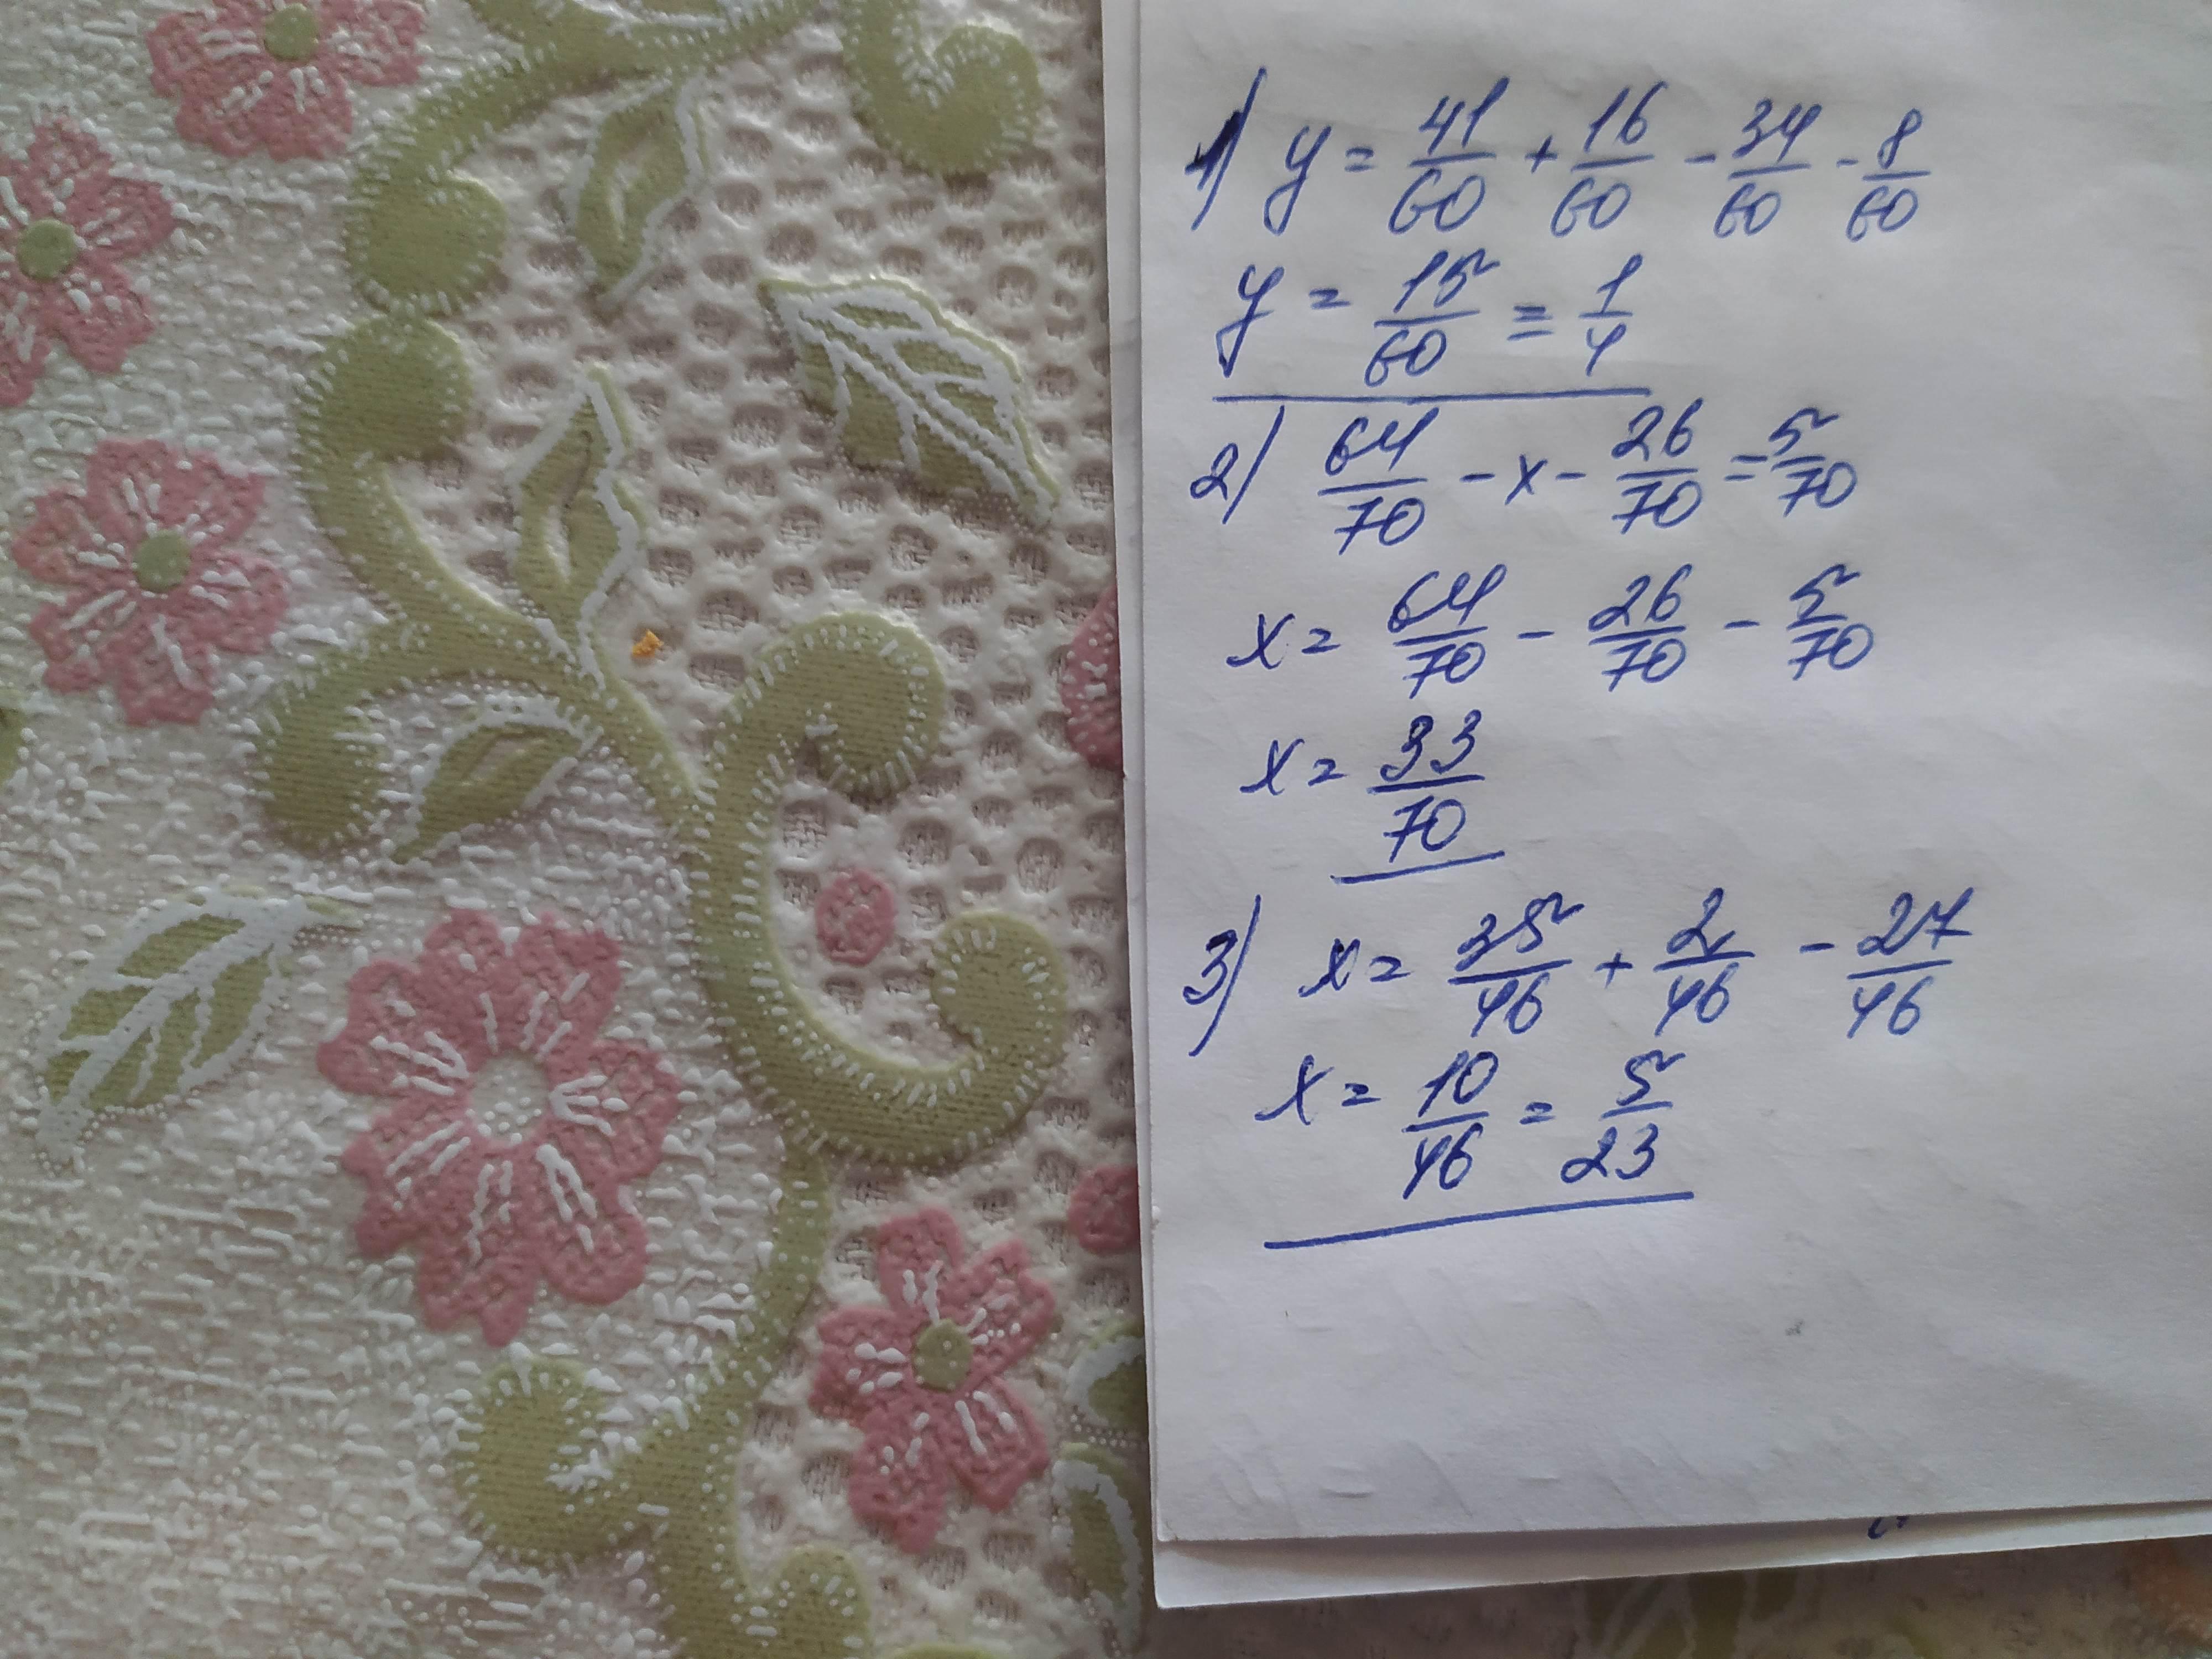 1) y = 41/60 + 16/60 - 34/60 - 8/60
y = 15/60 = 1/4
2) 64/70 - x - 26/70 = 5/70
x = 64/70 - 26/70 - 5/70
x = 33/70
3) x = 35/46 + 2/46 - 27/46
x = 10/46 = 5/23